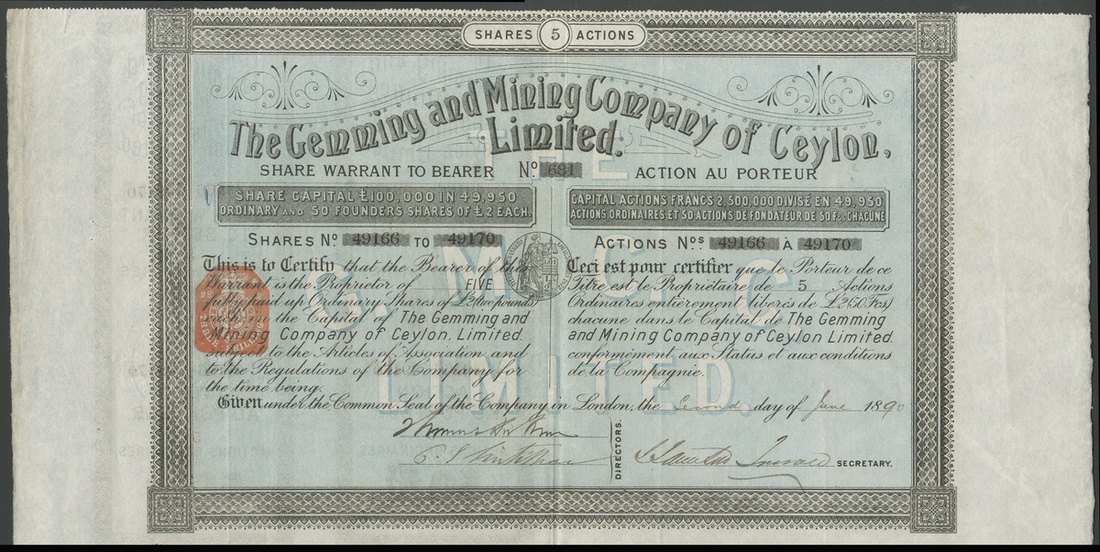 SHARES 5 ACTIONS
The Gemming and Mining Company of Ceylon,
Limited.
SHARE WARRANT TO BEARER No. 681 ACTION AU PORTEUR
SHARE CAPITAL £100,000 IN 49,950
ORDINARY AND 50 FOUNDERS SHARES OF £2 EACH.
CAPITAL ACTIONS FRANCS 2,500,000 DIVISÉ EN 49,950
ACTIONS ORDINAIRES ET 50 ACTIONS DE FONDATEUR DE 50 F.. CHACUNE
SHARES No 49166 TO 49170
ACTIONS Nos 49166 À 49170
This is to Certify that the Bearer of this
Warrant is the Proprietor of FIVE
fully paid up Ordinary Shares of £2 (two pounds)
each in the Capital of The Gemming and
Mining Company of Ceylon, Limited.
subject to the Articles of Association and
to the Regulations of the Company for
the time being.
Ceci est pour certifier que le Porteur de ce
Titre est le Propriétaire de 5 Actions
Ordinaires entièrement libérés de £2 (50 Fcs)
chacune dans le Capital de The Gemming
and Mining Company of Ceylon Limited
conformément aux Statuts et aux conditions
de la Compagnie.
Given under the Common Seal of the Company in London, the Second day of June 1890
DIRECTORS.
SECRETARY.
THE
G. M. C. C.
LIMITED.